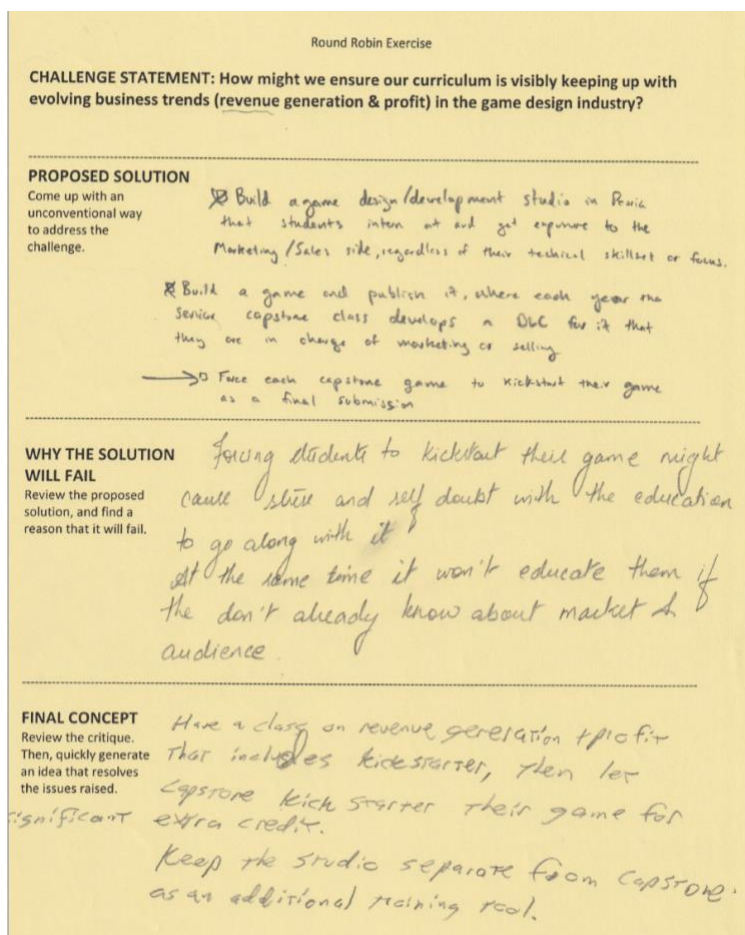 Round Robin Exercise
CHALLENGE STATEMENT: How might we ensure our curriculum is visibly keeping up with
evolving business trends (revenue generation & profit) in the game design industry?
PROPOSED SOLUTION
Come up with an
unconventional way
to address the
challenge.
Build a game design/development studio in Peoria
that students intern at and get exposure to the
Marketing/Sales side, regardless of their techical skillset or focus.
Build a game and publish it, where each year the
Senior capstone class develops a DLC for it that
they are in charge of marketing or selling
Force each capstone game to Kickstart their game
as a final submission
WHY THE SOLUTION
WILL FAIL
Review the proposed
solution, and find a
reason that it will fail.
Forcing students to kickstart their game might
cause stress and self doubt with the education
to go along with it
At the same time it won't educate them if
the don't already know about market &
audience
FINAL CONCEPT
Review the critique.
Then, quickly generate
an idea that resolves
the issues raised.
Have a class on revenue generation + profit
That includes kickstarter, then let
Capstone kickstarter their game for
significant extra credit.
Keep the studio separate from Capstone.
as an additional training tool.